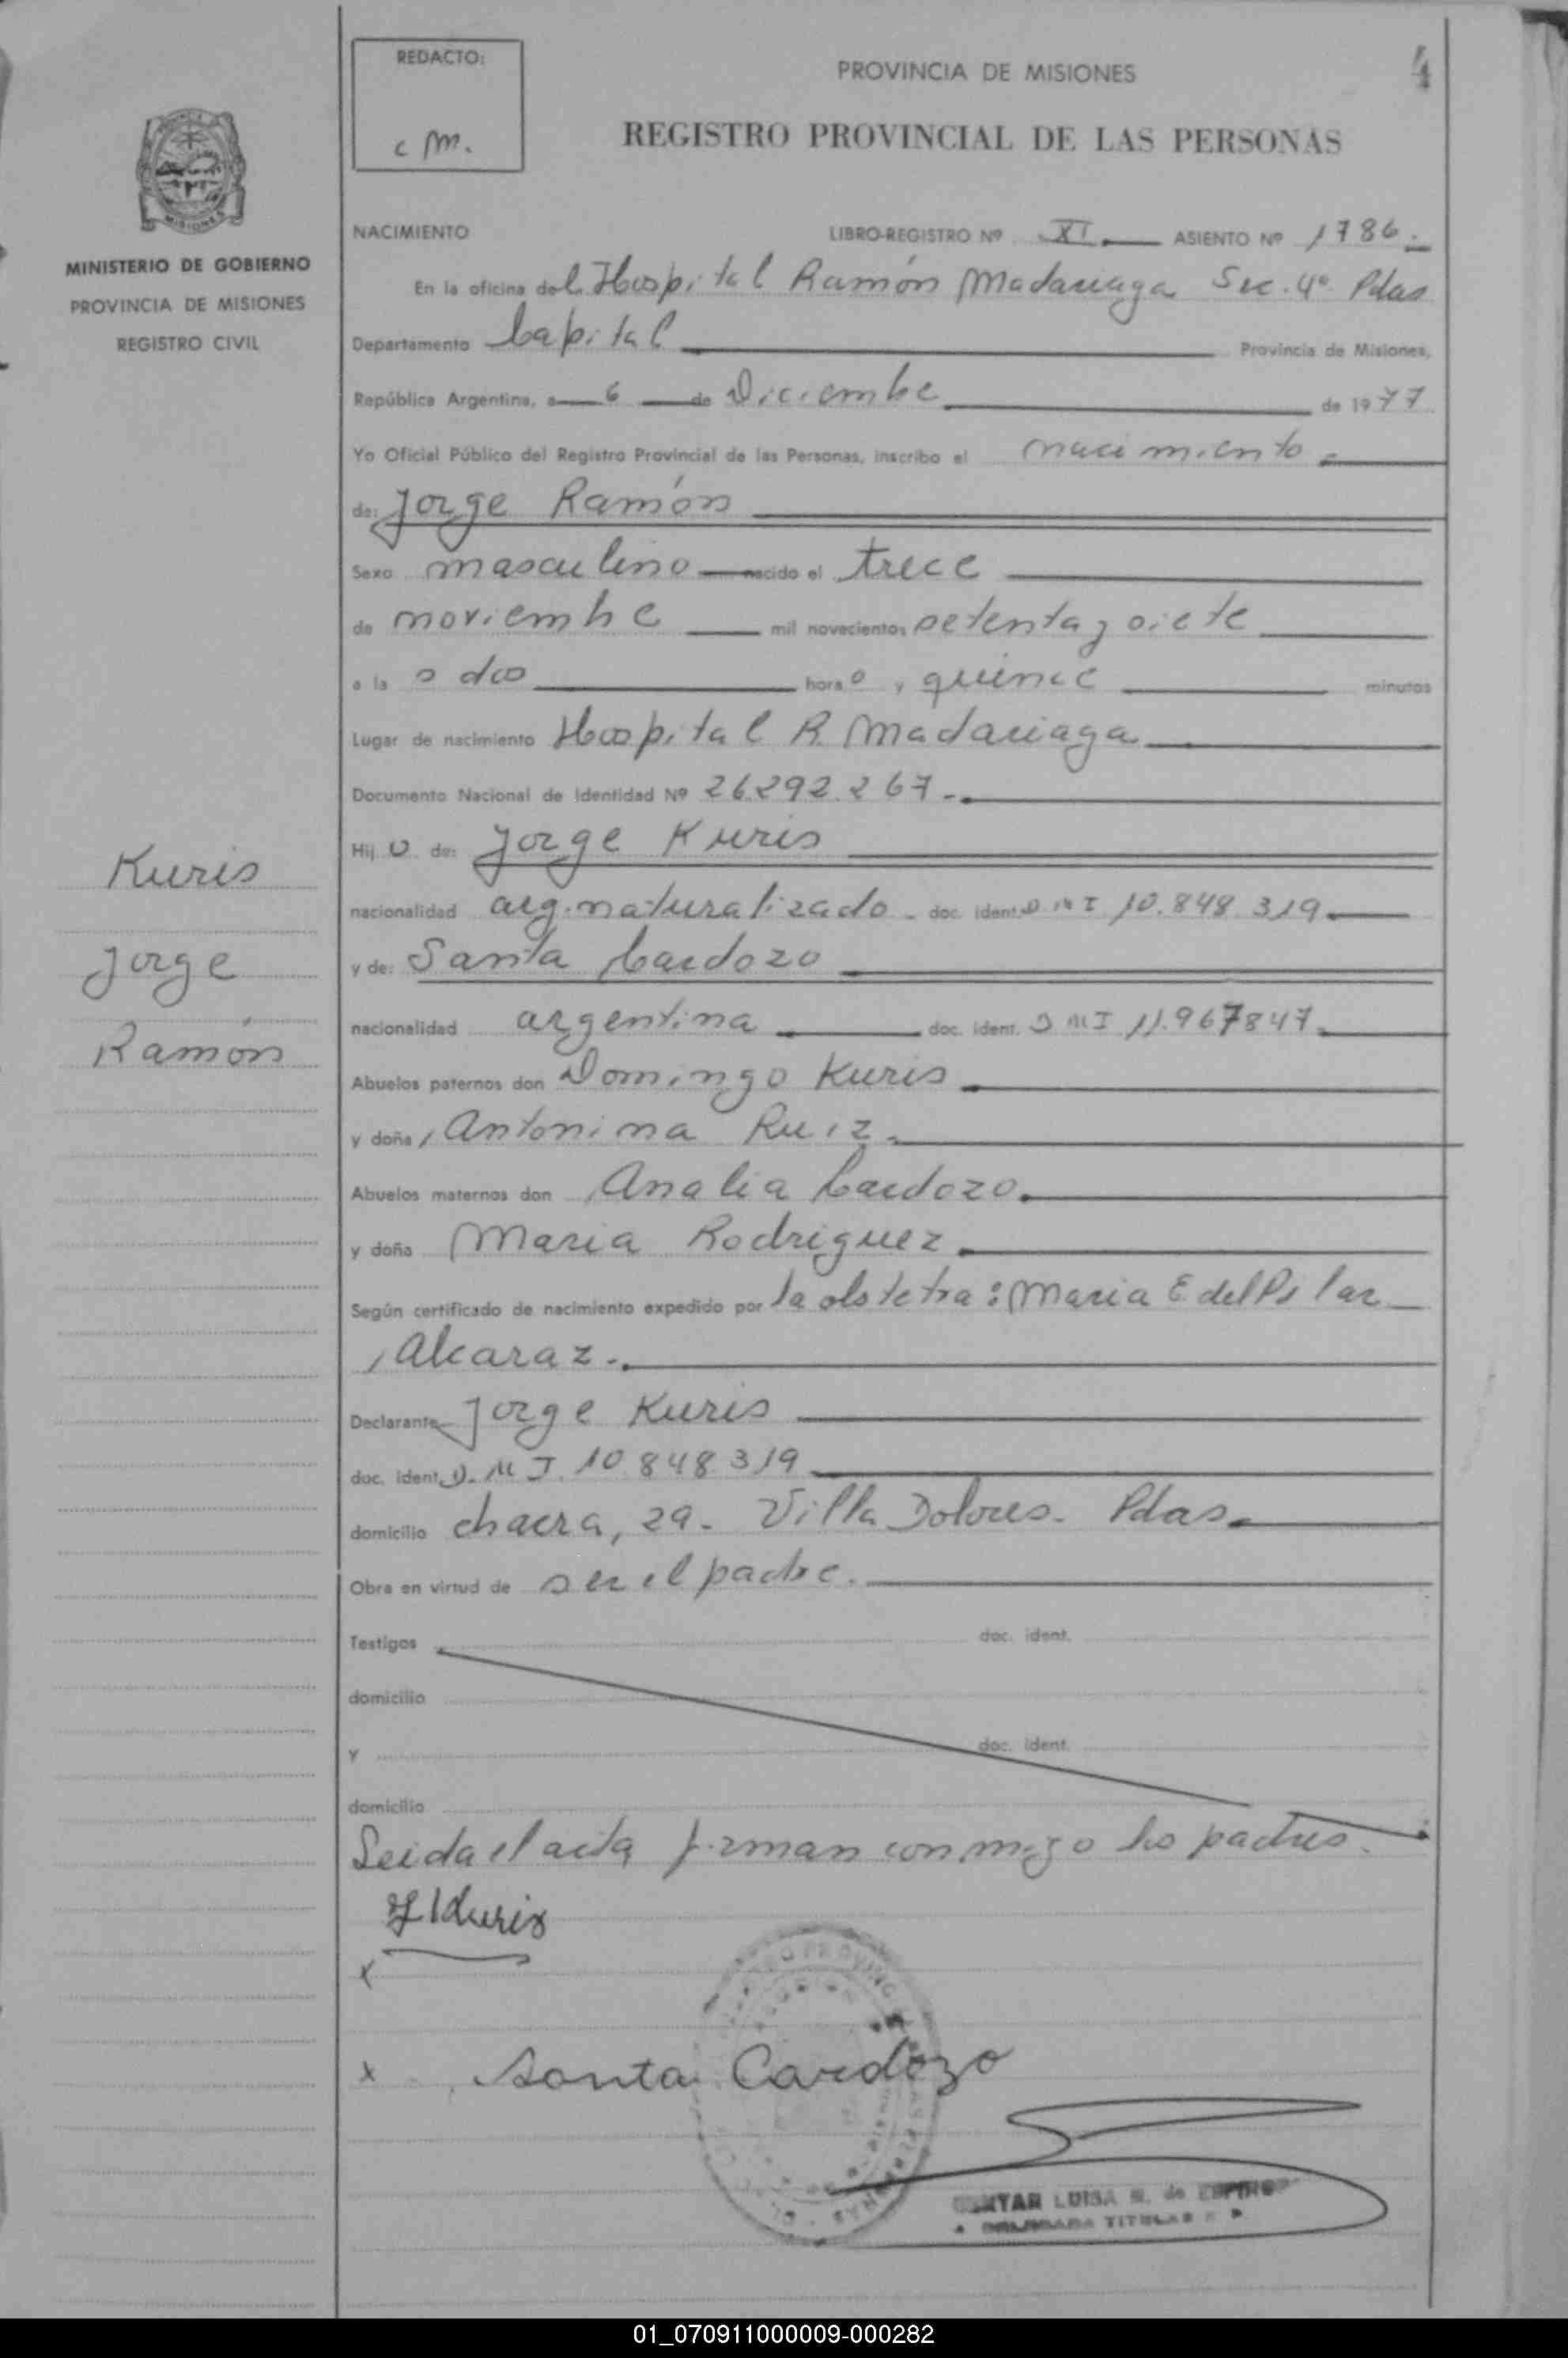 REDACTO:
c m.
PROVINCIA DE MISIONES
4
REGISTRO PROVINCIAL DE LAS PERSONAS
MISIONES
MINISTERIO DE GOBIERNO
PROVINCIA DE MISIONES
REGISTRO CIVIL
NACIMIENTO LIBRO-REGISTRO Nº XI ASIENTO Nº 1786.
En la oficina del Hospital Ramón Madariaga Sec. 4º Pdas
Departamento Capital Provincia de Misiones,
República Argentina, a 6 de Diciembre de 1977
Yo Oficial Público del Registro Provincial de las Personas, inscribo el nacimiento
de: Jorge Ramón
Sexo masculino nacido el trece
de noviembre mil novecientos setenta y siete
a las dos horas y quince minutos
Lugar de nacimiento Hospital R. Madariaga
Documento Nacional de Identidad Nº 26.292.267.-
Hijo de: Jorge Kuris
nacionalidad arg. naturalizado - doc. ident. D N I 10.848.319
y de: Santa Cardozo
nacionalidad argentina doc. ident. D N I 11.967847
Abuelos paternos don Domingo Kuris
y doña Antonina Ruiz
Abuelos maternos don Analia Cardozo
y doña Maria Rodriguez
Según certificado de nacimiento expedido por la obstetra: Maria E del Pilar
Alcaraz.
Declarante Jorge Kuris
doc. ident. D. N I. 10.848.319
domicilio chacra, 29- Villa Dolores. Pdas
Obra en virtud de ser el padre.
Testigos doc. ident.
domicilio
y doc. ident.
domicilio
Leida el acta firman conmigo los padres.
J Kuris
x
x Santa Cardozo
LUISA
TITULAR
Kuris
Jorge
Ramón
01_070911000009-000282